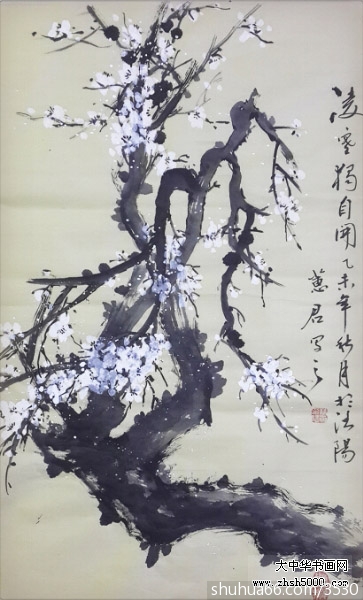 凌寒獨自開乙未年秋月於沈陽
蕙君写之
大中华书画网
www.zhsh5000.com
shuhua66.com/3530